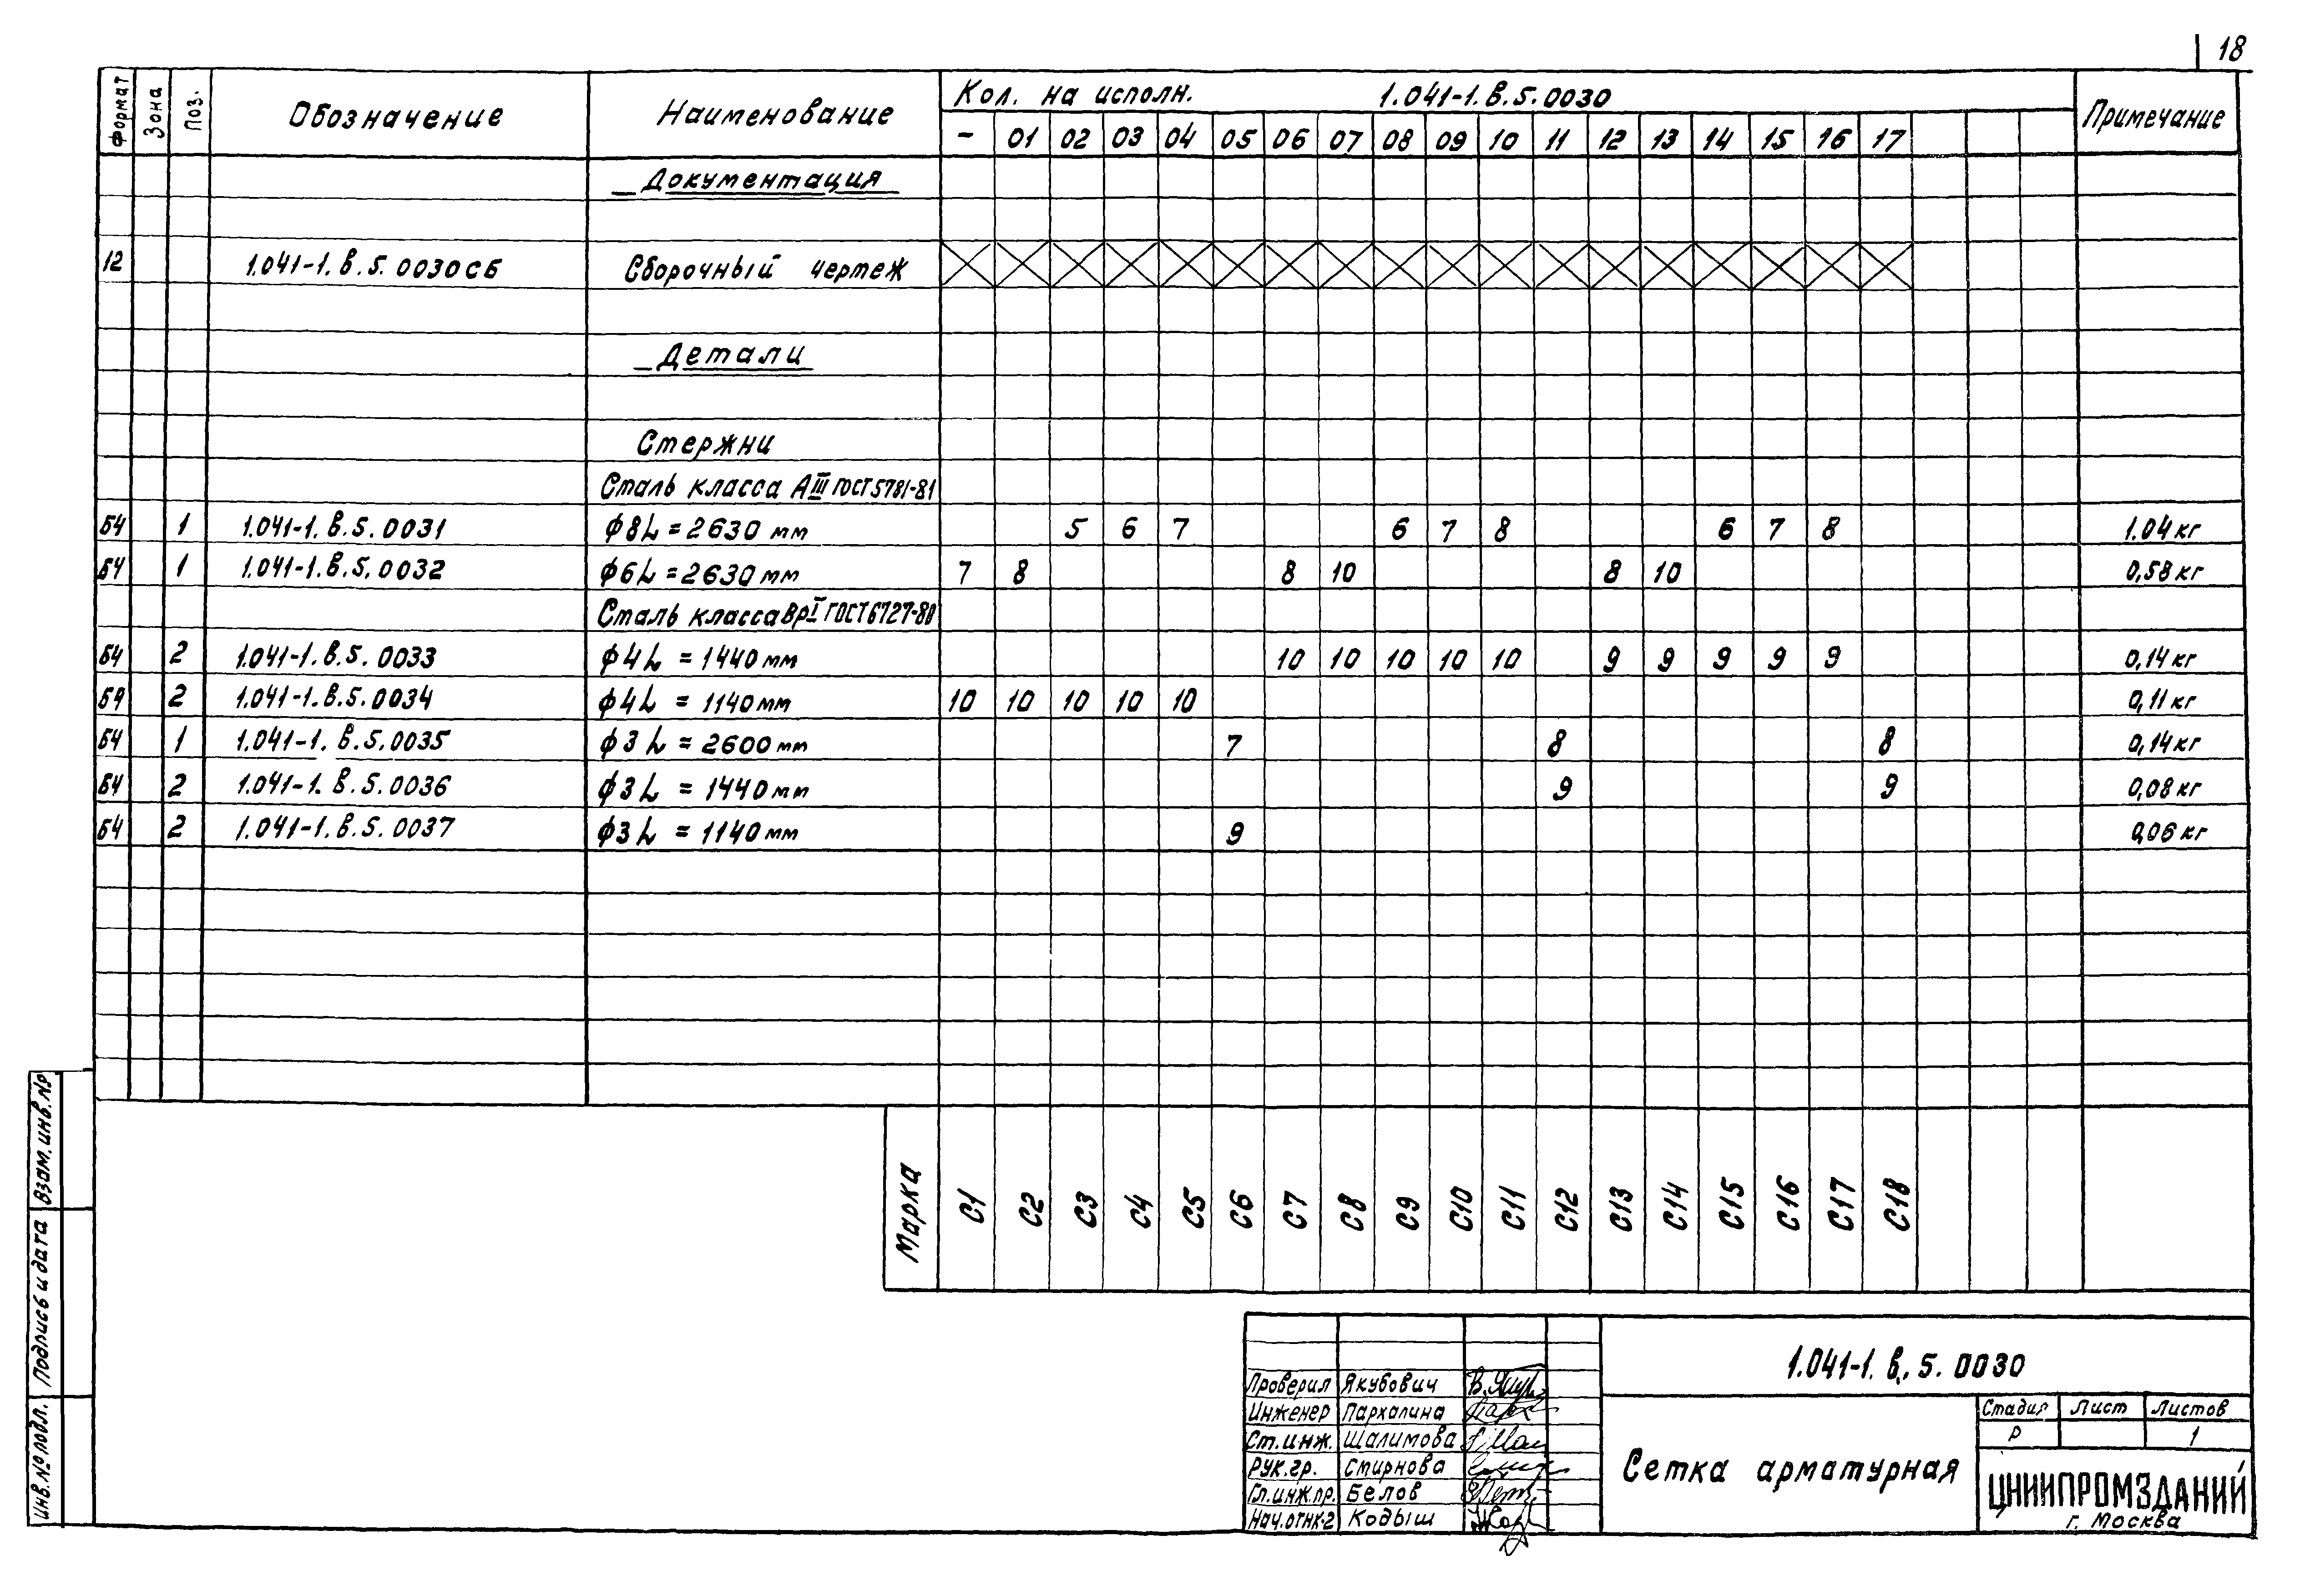 18
Формат Зона Поз. Обозначение Наименование Кол. на исполн. 1.041-1.в.5.0030 Примечание
- 01 02 03 04 05 06 07 08 09 10 11 12 13 14 15 16 17
Документация
12 1.041-1.в.5.0030СБ Сборочный чертеж
Детали
Стержни
Сталь класса АIII ГОСТ5781-81
Б4 1 1.041-1.в.5.0031 ф8L=2630 мм 5 6 7 6 7 8 6 7 8 1.04кг
Б4 1 1.041-1.в.5.0032 ф6L=2630мм 7 8 8 10 8 10 0,58кг
Сталь класса ВрI ГОСТ6727-80
Б4 2 1.041-1.в.5.0033 ф4L=1440мм 10 10 10 10 10 9 9 9 9 9 0,14кг
Б4 2 1.041-1.в.5.0034 ф4L = 1140мм 10 10 10 10 10 0,11кг
Б4 1 1.041-1.в.5.0035 ф3L=2600мм 7 8 8 0,14кг
Б4 2 1.041-1.в.5.0036 ф3L=1440мм 9 9 0,08кг
Б4 2 1.041-1.в.5.0037 ф3L=1140мм 9 0,06кг
Марка С1 С2 С3 С4 С5 С6 С7 С8 С9 С10 С11 С12 С13 С14 С15 С16 С17 С18
Взам. инв. №
Подпись и дата
Инв. № подл.
1.041-1.в.5.0030
Проверил Якубович
Инженер Пархалина
Ст.инж. Шалимова
Рук.гр. Смирнова
Гл.инж.пр. Белов
Нач.отнк-2 Кодыш
Сетка арматурная
Стадия Лист Листов
Р 1
ЦНИИПРОМЗДАНИЙ
г. Москва